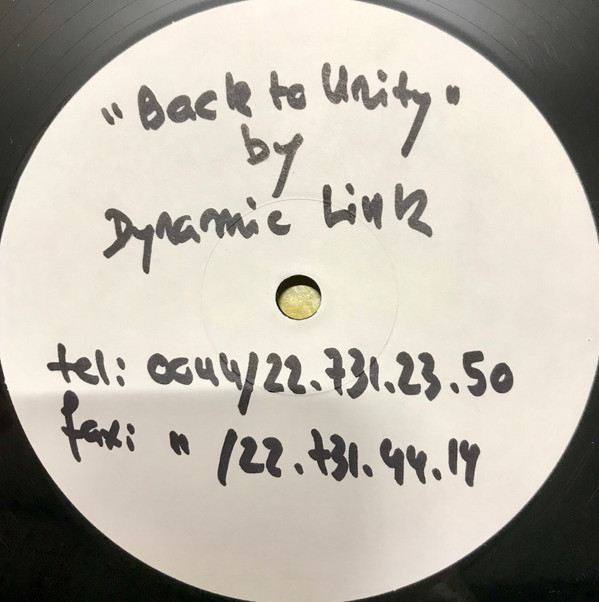 "Back to Unity"
by
Dynamic Link
tel: 0044/22.731.23.50
fax: " /22.731.44.14